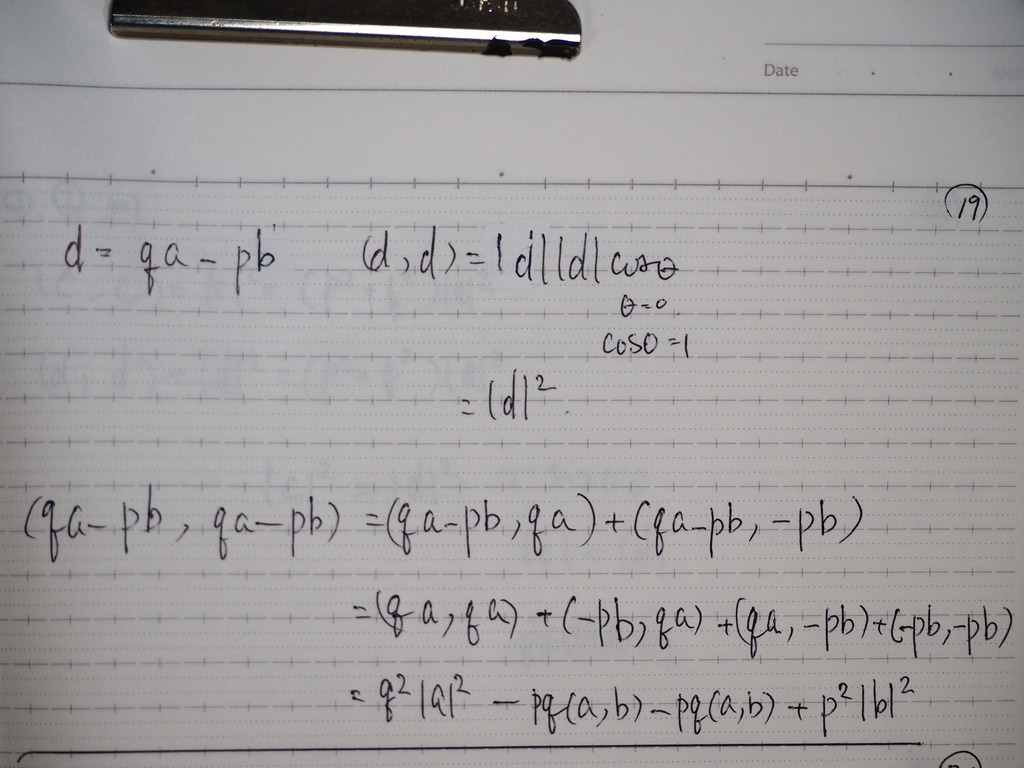 Date
19
d = qa - pb (d, d) = |d||d| cosθ
θ=0.
cos0 = 1
= |d|².
(qa-pb, qa-pb) = (qa-pb, qa) + (qa-pb, -pb)
= (qa, qa) + (-pb, qa) + (qa, -pb) + (-pb, -pb)
= q²|a|² - pq(a,b) - pq(a,b) + p²|b|²